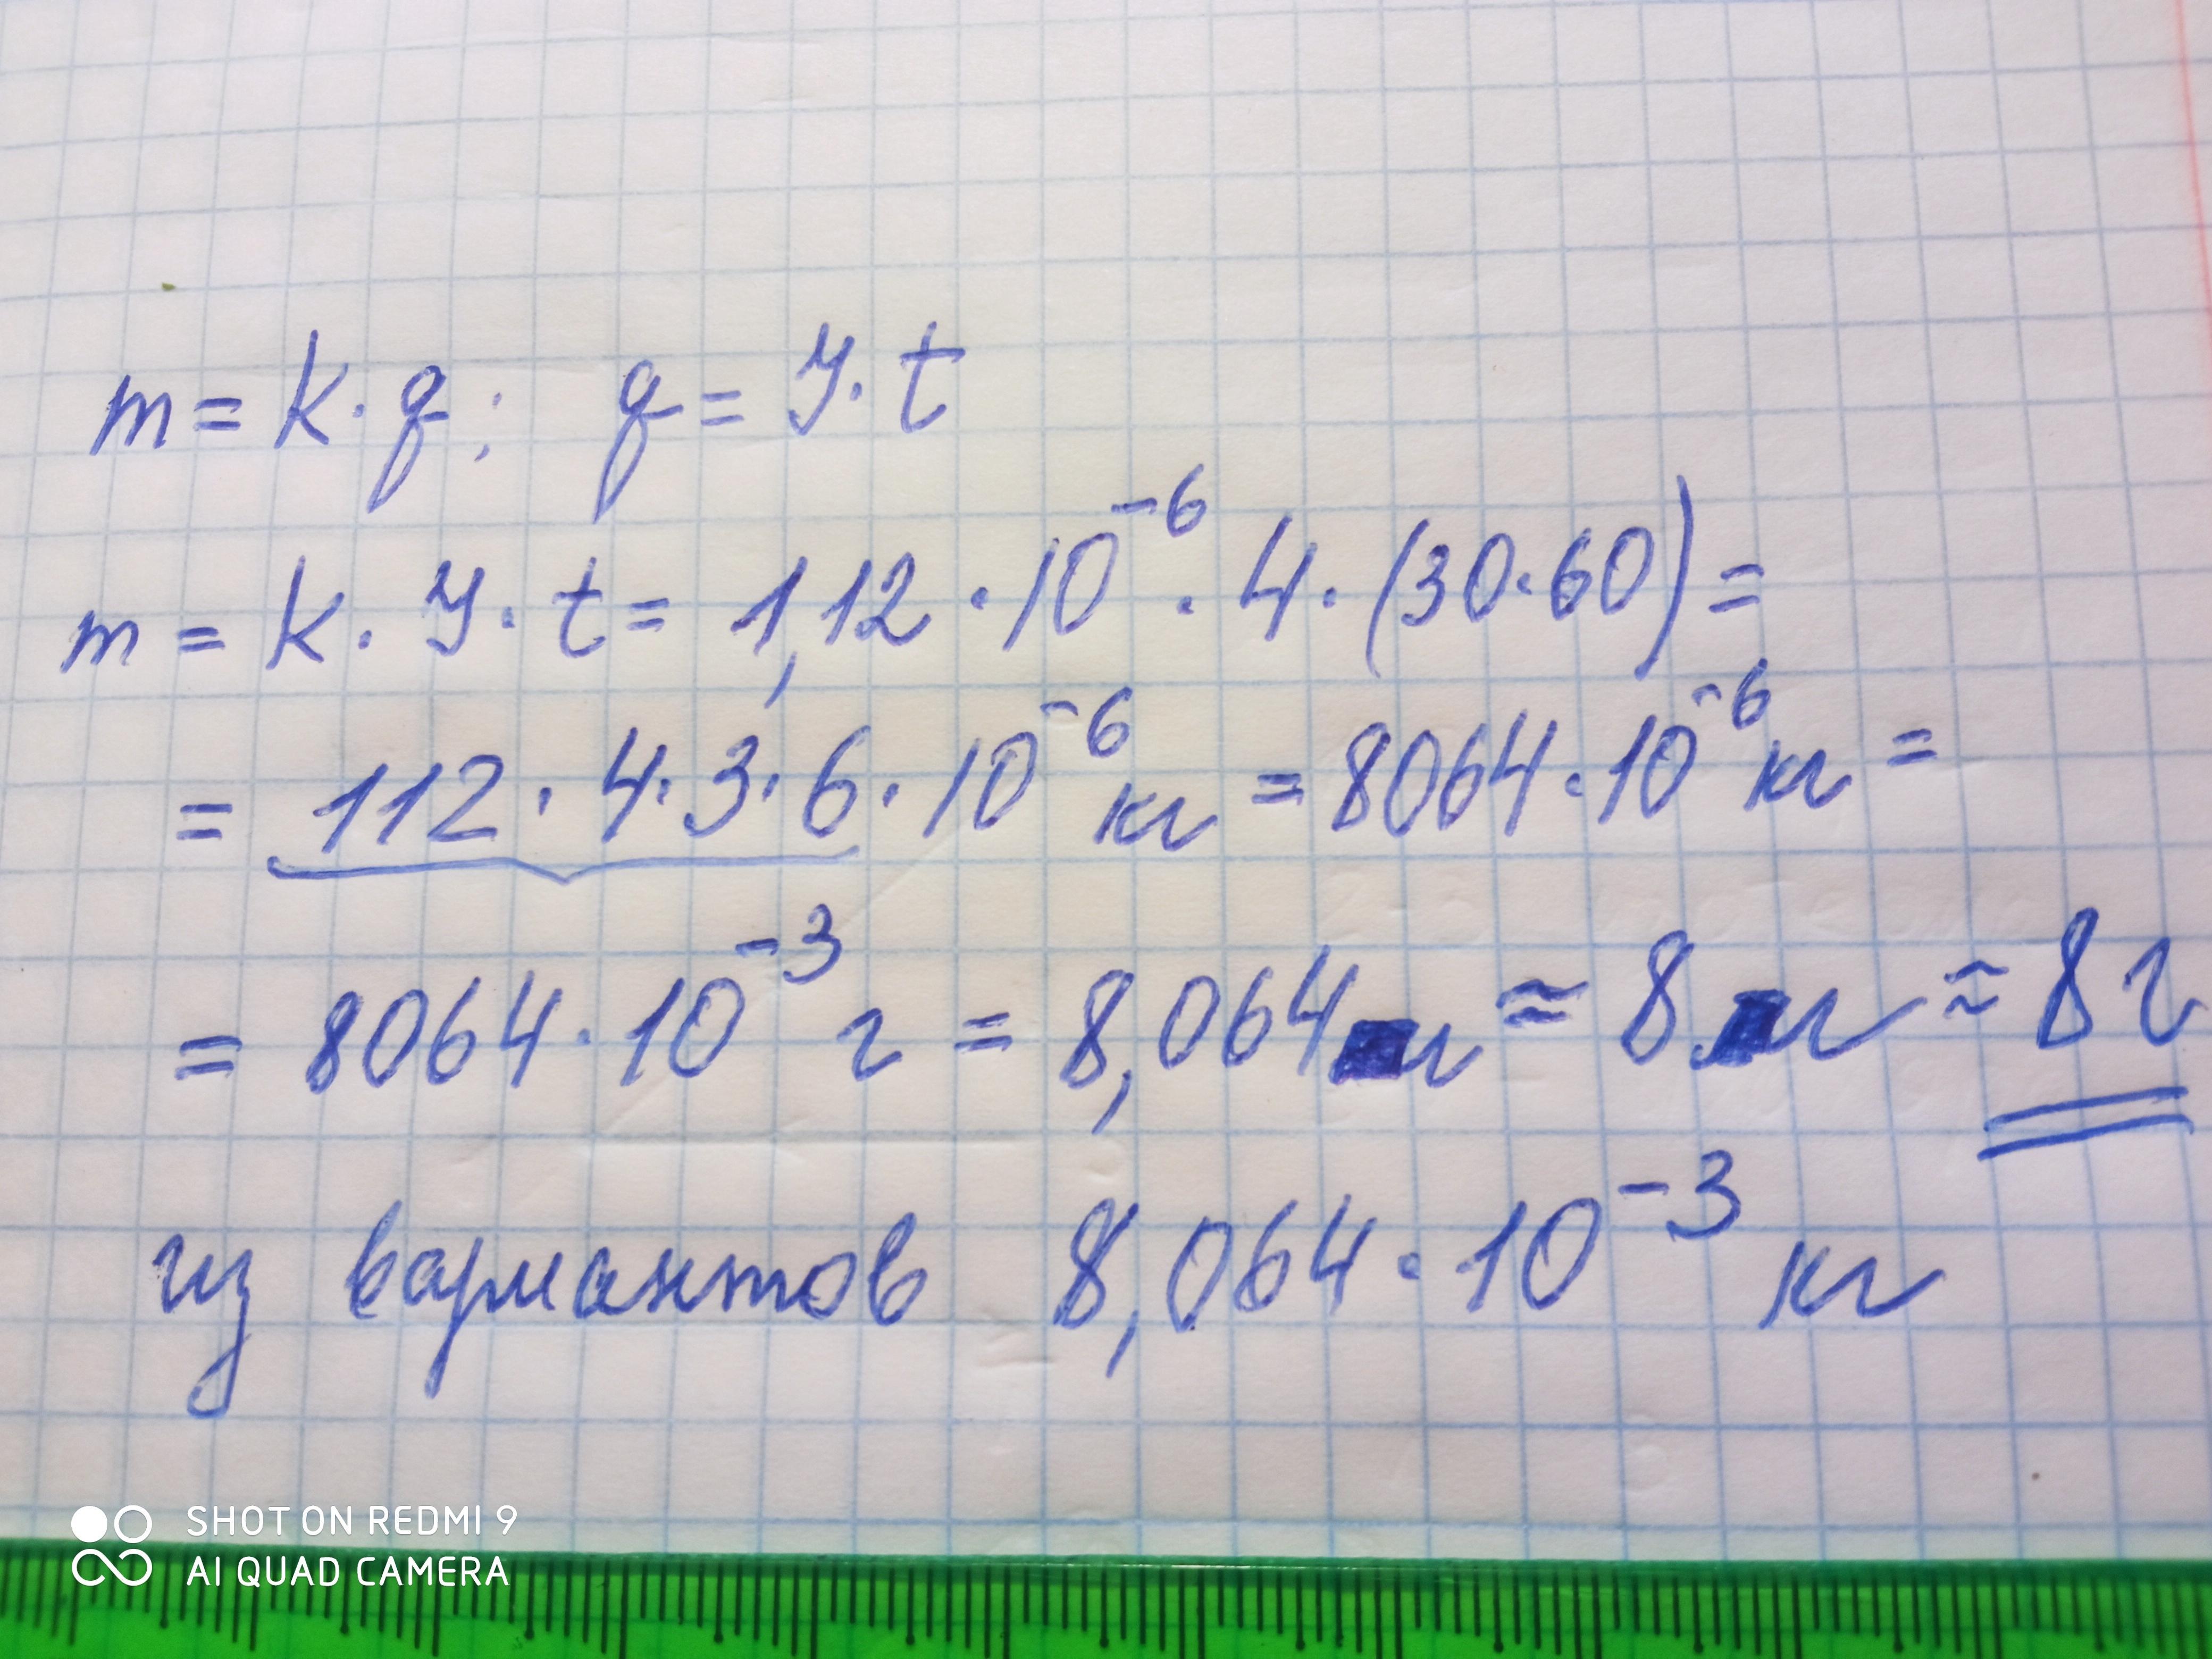 m = k · q; q = У · t
m = k · У · t = 1,12 · 10⁻⁶ · 4 · (30 · 60) =
= 112 · 4 · 3 · 6 · 10⁻⁶ кг = 8064 · 10⁻⁶ кг =
= 8064 · 10⁻³ г = 8,064 г ≈ 8 г ≈ 8 г
из вариантов 8,064 · 10⁻³ кг
SHOT ON REDMI 9
AI QUAD CAMERA